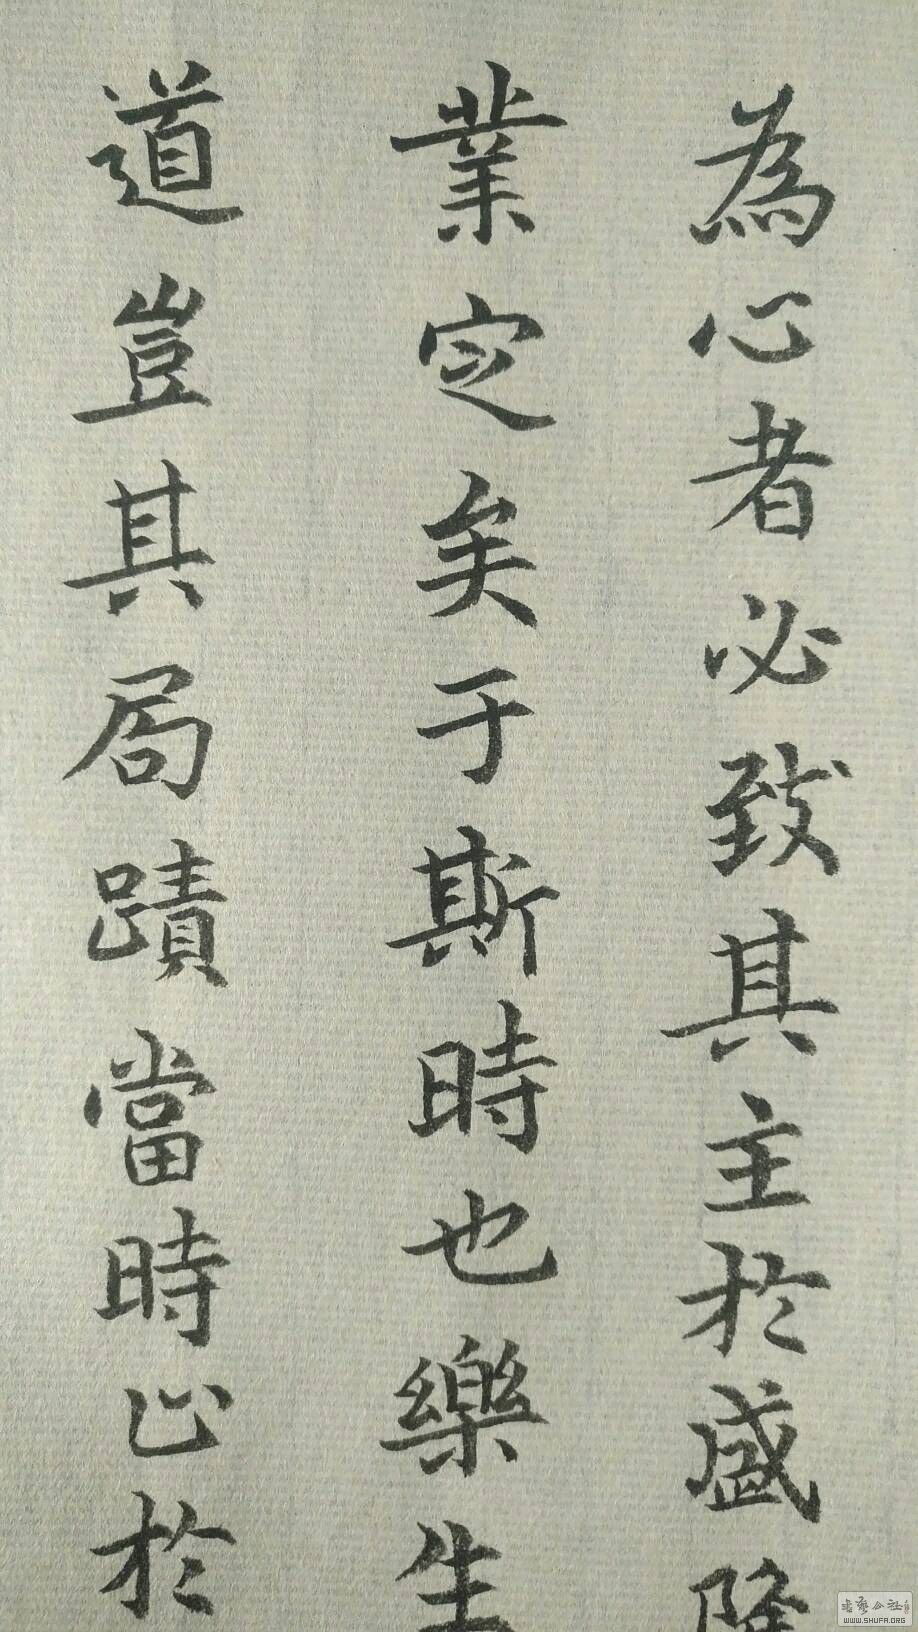 為心者必致其主於盛隆
業定矣于斯時也樂生
道豈其局蹟當時止於
書藝公社
WWW.SHUFA.ORG